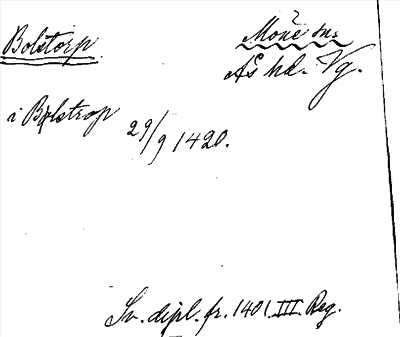 Bolstorp
Mone sn.
Ås hd. Vg.
i Bolstrop
29/9 1420.
Sv. dipl. fr. 1401 III. Reg.